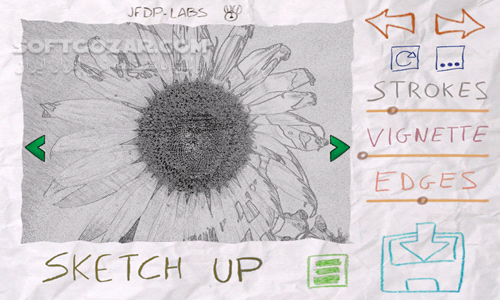 JFDP-LABS
SOFTGOZAR.COM
STROKES
VIGNETTE
EDGES
SKETCH UP